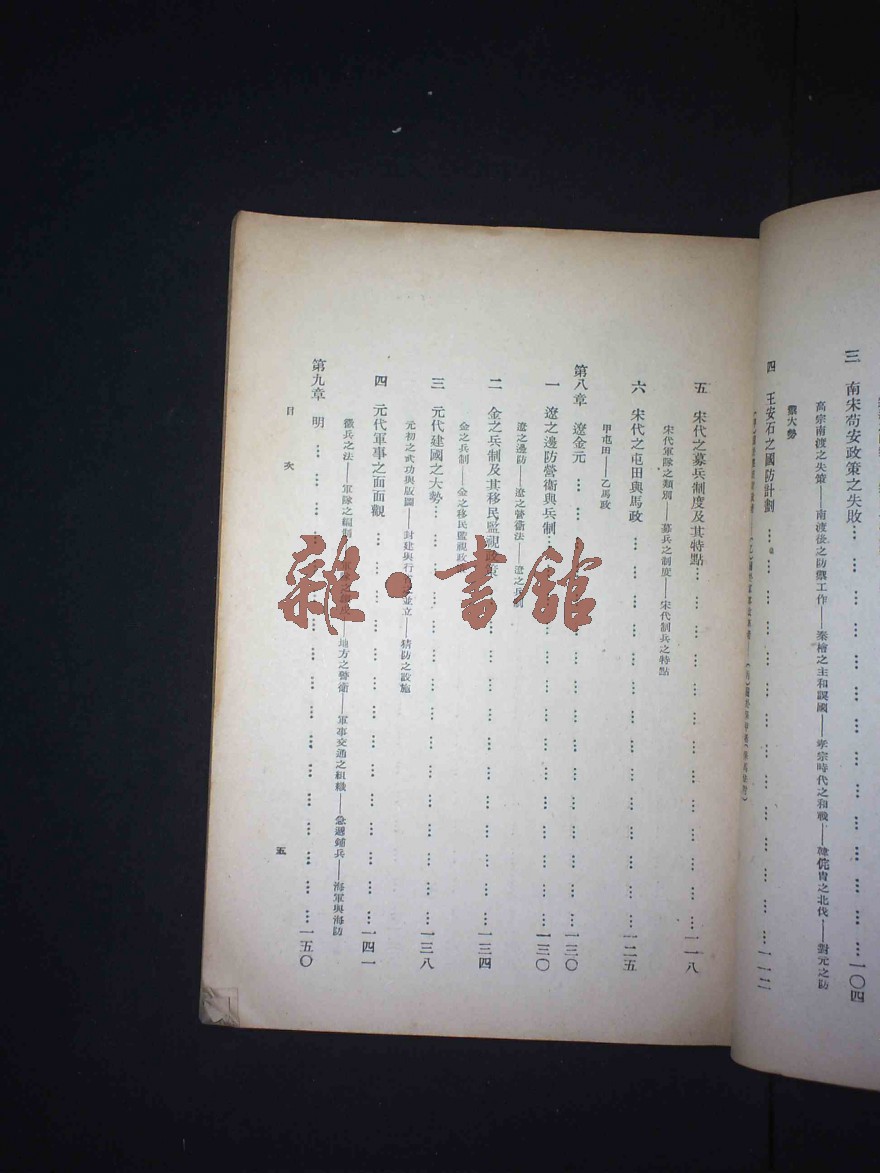 三 南宋苟安政策之失敗…………一〇四
高宗南渡之失策——南渡後之防禦工作——秦檜之主和誤國——孝宗時代之和戰——韓侂胄之北伐——對元之防
禦大勢
四 王安石之國防計劃…………一一二
五 宋代之募兵制度及其特點…………一一八
宋代軍隊之類別——募兵之制度——宋代制兵之特點
六 宋代之屯田與馬政…………一二五
甲屯田——乙馬政
第八章 遼金元…………一三〇
一 遼之邊防營衞與兵制…………一三〇
遼之邊防——遼之營衞法——遼之兵制
二 金之兵制及其移民監視政策…………一三四
金之兵制——金之移民監視政
三 元代建國之大勢…………一三八
元初之武功與版圖——封建與行 並立——猜防之設施
四 元代軍事之面面觀…………一四一
第九章 明…………一五〇
徵兵之法——軍隊之編制——地方之警衞——軍事交通之組織——急遞鋪兵——海軍與海防
目次
五
雜·書館